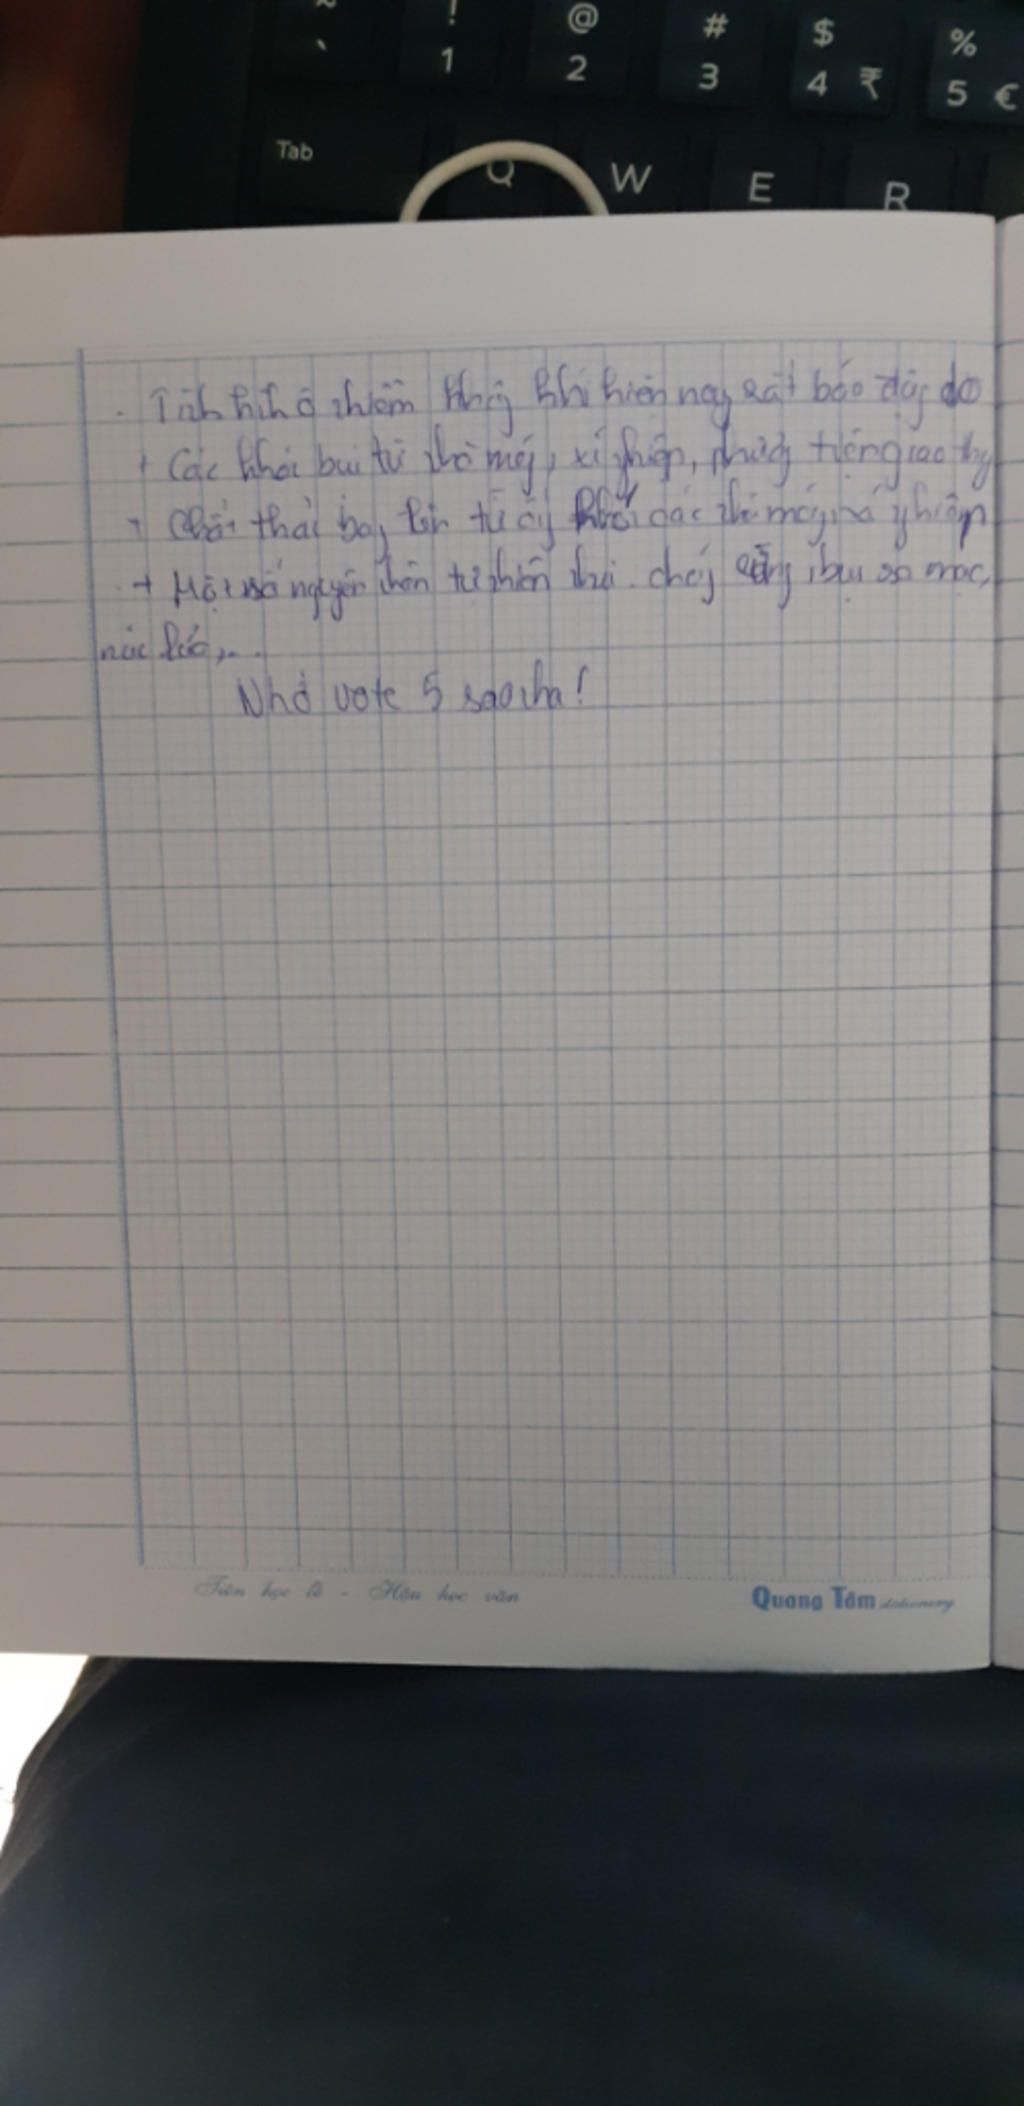 ~ ! @ # $ %
` 1 2 3 4 ₹ 5 €
Tab Q W E R
- Tình hình ô nhiễm không khí hiện nay rất báo động do
+ Các khói bụi từ nhà máy, xí nghiệp, phương tiện giao thông
+ Chất thải bay lên từ ống khói các nhà máy, xí nghiệp
+ Một số nguyên nhân tự nhiên như: cháy rừng, bụi sa mạc,
núi lửa,...
Nhớ vote 5 sao nha!
Tiên học lễ - Hậu học văn
Quang Tâm stationery